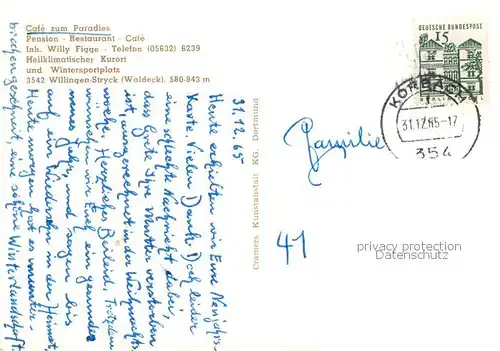 Café zum Paradies
Pension - Restaurant - Café
Inh. Willy Figge - Telefon (05632) 6239
Heilklimatischer Kurort
und Wintersportplatz
3542 Willingen-Stryck (Waldeck), 580-843 m
31.12.65
Heute erhielten wir Eure Neujahrs-
Karte. Vielen Dank. Doch leider
eine schlechte Nachricht dabei,
dass Gretel Ihre Mutter verstorben
ist, ausgerechnet in der Weihnachts-
woche. Herzliches Beileid. Trotzdem
wünschen wir Euch ein gesundes
neues Jahr, und sagen bis
auf ein Wiedersehn in der Heimat.
Heute morgen hat es ununter-
brochen geschneit, eine schöne Winterlandschaft.
Cramers Kunstanstalt KG. Dortmund
DEUTSCHE BUNDESPOST
15
KORBACH
31.12.65-17
354
Familie
41
privacy protection
Datenschutz